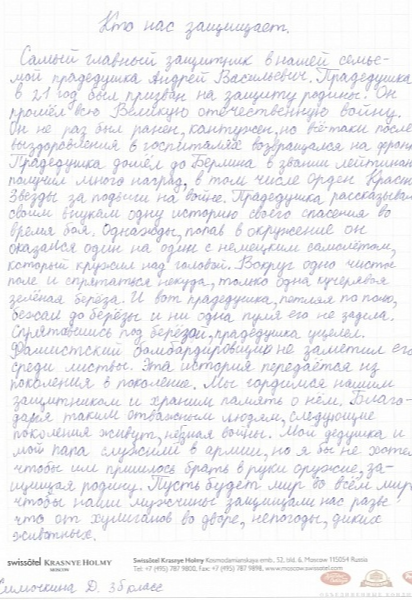 Кто нас защищает.
Самый главный защитник в нашей семье-
мой прадедушка Андрей Васильевич. Прадедушка
в 21 год был призван на защиту родины. Он
прошёл всю Великую отечественную войну.
Он не раз был ранен, контужен, но всё-таки после
выздоровления в госпиталях возвращался на фронт
Прадедушка дошёл до Берлина в звании лейтинан
получил много наград, в том числе Орден Красн
Звезды за подвиги на войне. Прадедушка рассказывал
своим внукам одну историю своего спасения во
время боя. Однажды, попав в окружение он
оказался один на один с немецким самолётом,
который кружил над головой. Вокруг одно чистое
поле и спрятаться некуда, только одна кучерявая
зелёная берёза. И вот прадедушка, петляя по полю,
бежал до берёзы и ни одна пуля его не задела.
Спрятавшись под берёзой, прадедушка уцелел.
Фашистский бомбардировщик не заметил его
среди листвы. Эта история передаётся из
поколения в поколение. Мы гордимся нашим
защитником и храним память о нём. Благо-
даря таким отважным людям, следующие
поколения живут, не зная войны. Мой дедушка и
мой папа служили в армии, но я бы не хотел
чтобы им пришлось брать в руки оружие, за-
щищая родину. Пусть будет мир во всём мире
чтобы наши мужчины защищали нас разве
что от хулиганов во дворе, непогоды, диких
животных.
swissôtel KRASNYE HOLMY
MOSCOW
Swissôtel Krasnye Holmy Kosmodamianskaya emb., 52, bld. 6, Moscow 115054 Russia
Tel: +7 (495) 787 9800, Fax: +7 (495) 787 9898, www.moscow.swissotel.com
Д. 3б класс